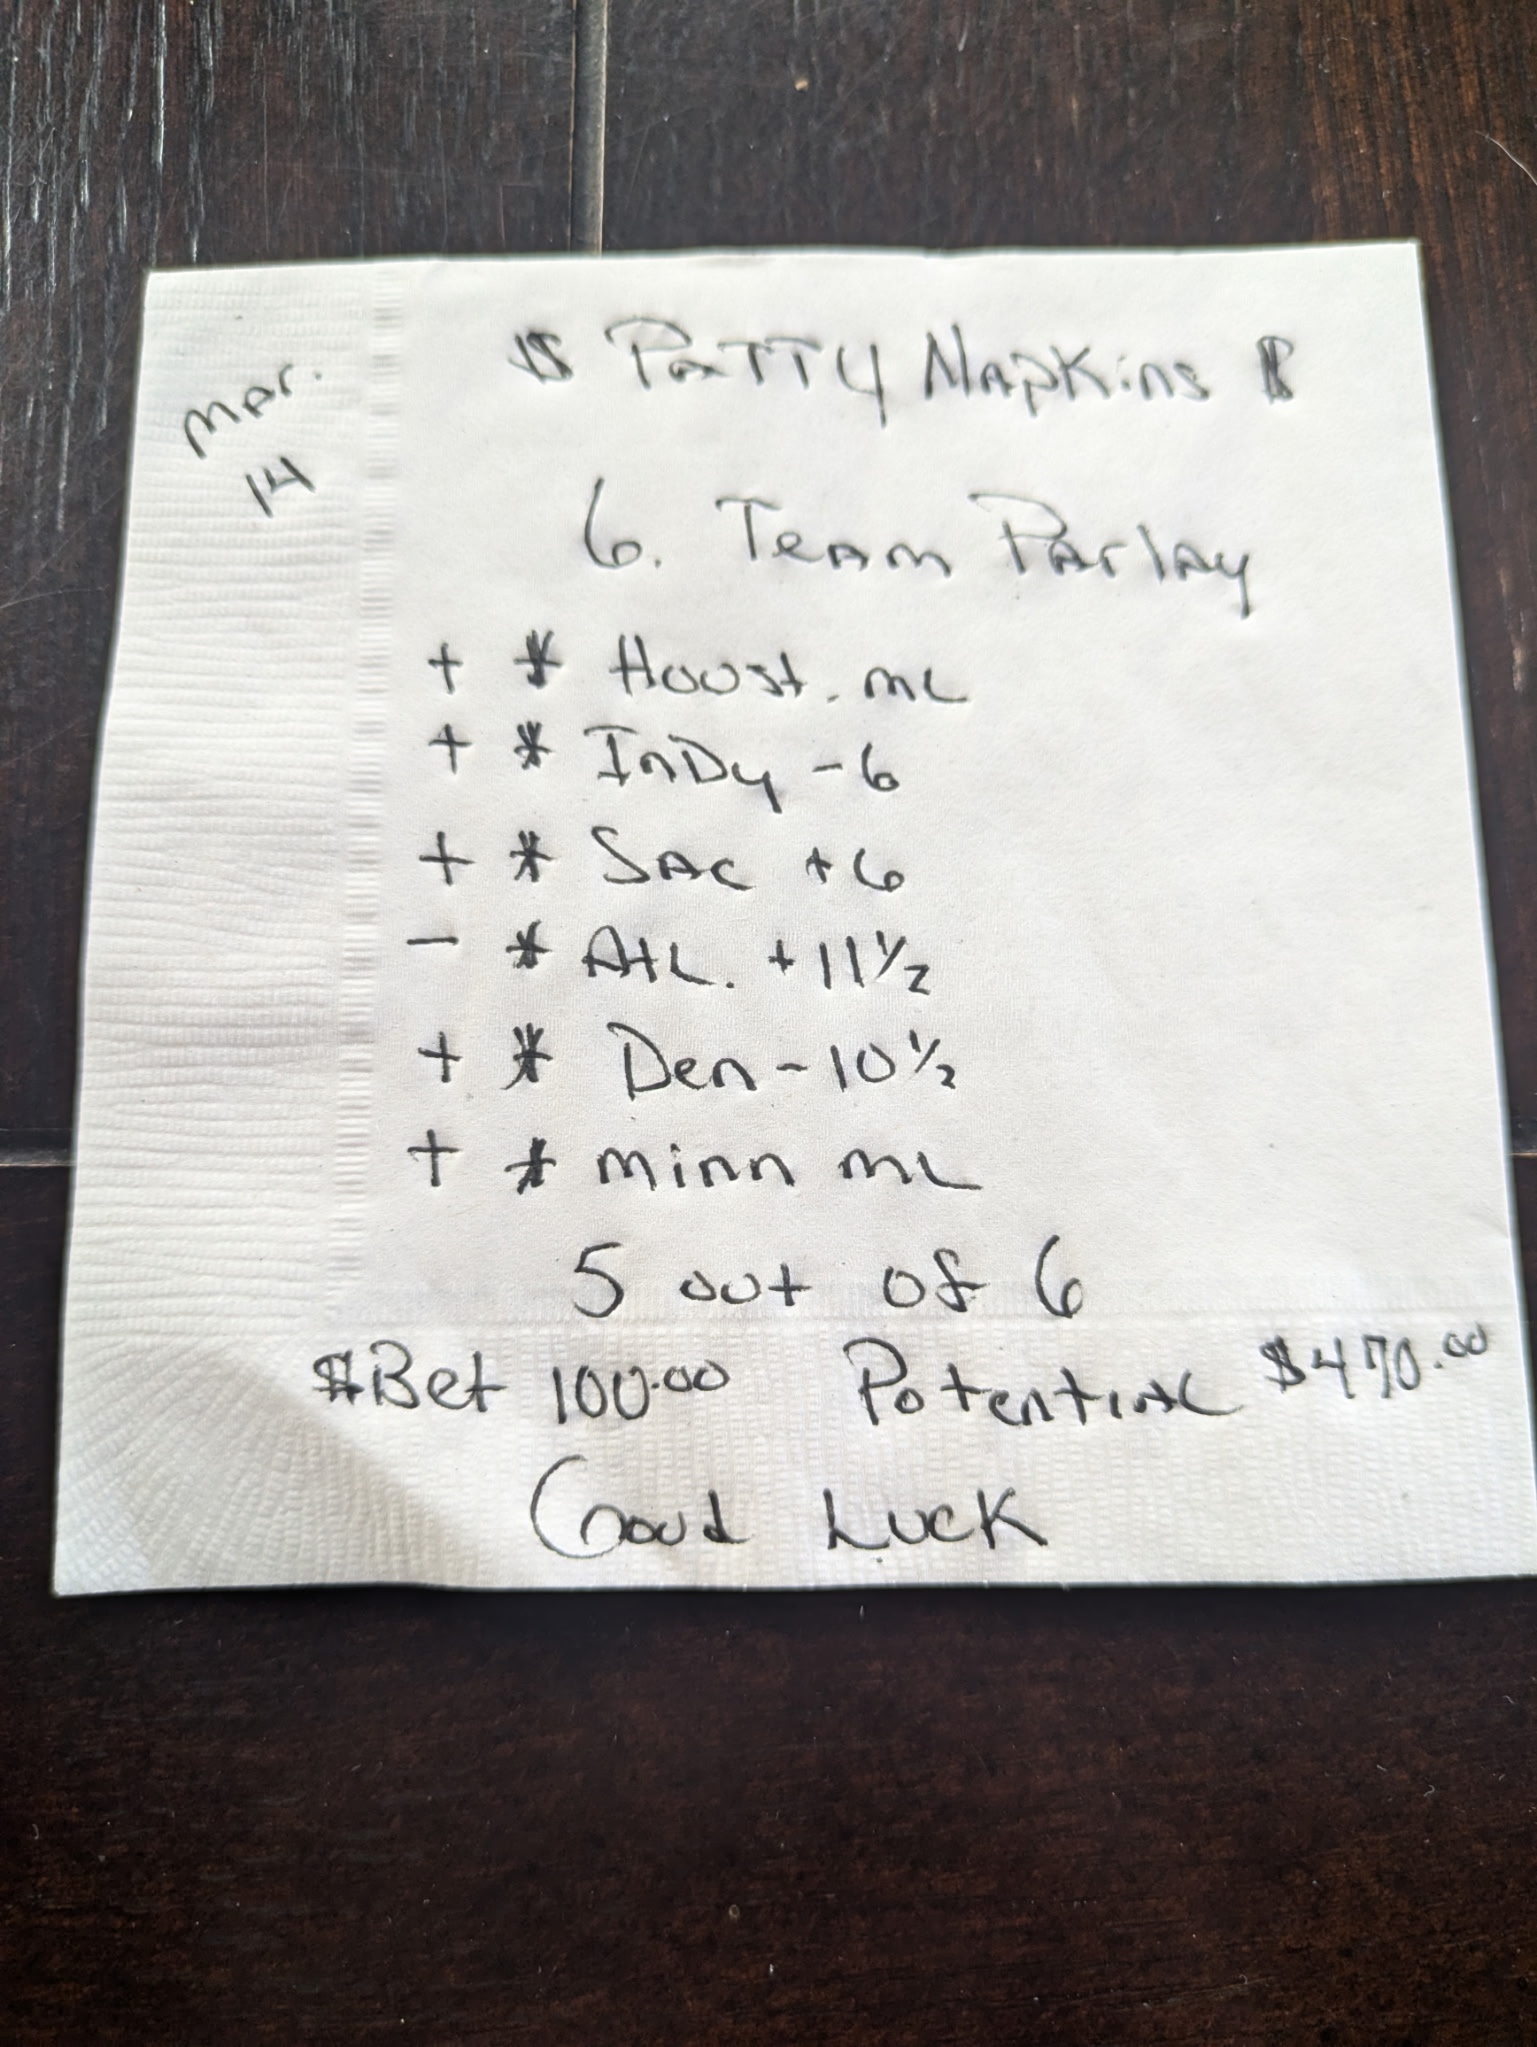 Mar.
14
$ PATTY NApKins $
6. TeAm PArlAy
+ * Houst. mL
+ * InDy -6
+ * SAc +6
- * AtL. +11½
+ * Den -10½
+ * minn mL
5 out of 6
$Bet 100.00 PotentiAL $470.00
Good Luck